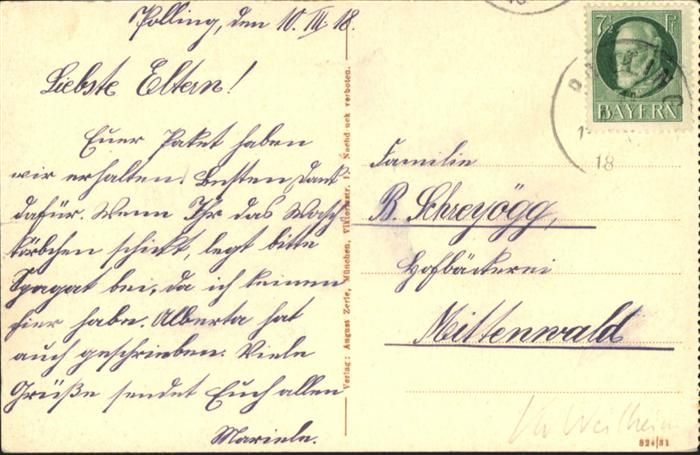 Polling, den 10. III. 18.
Liebste Eltern!
Euer Paket haben
wir erhalten. Besten Dank
dafür. Wenn Ihr das Wasch
körbchen schickt, legt bitte
Spagat bei, da ich keinen
hier habe. Alberta hat
auch geschrieben. Viele
Grüße sendet Euch allen
Mariele.
Verlag: August Zerle, München, Viktoriastr. 1. Nachdruck verboten.
7½ Pf
BAYERN
18
Familie
B. Schreyögg,
Hofbäckerei
Mittenwald
Weilheim
824/31